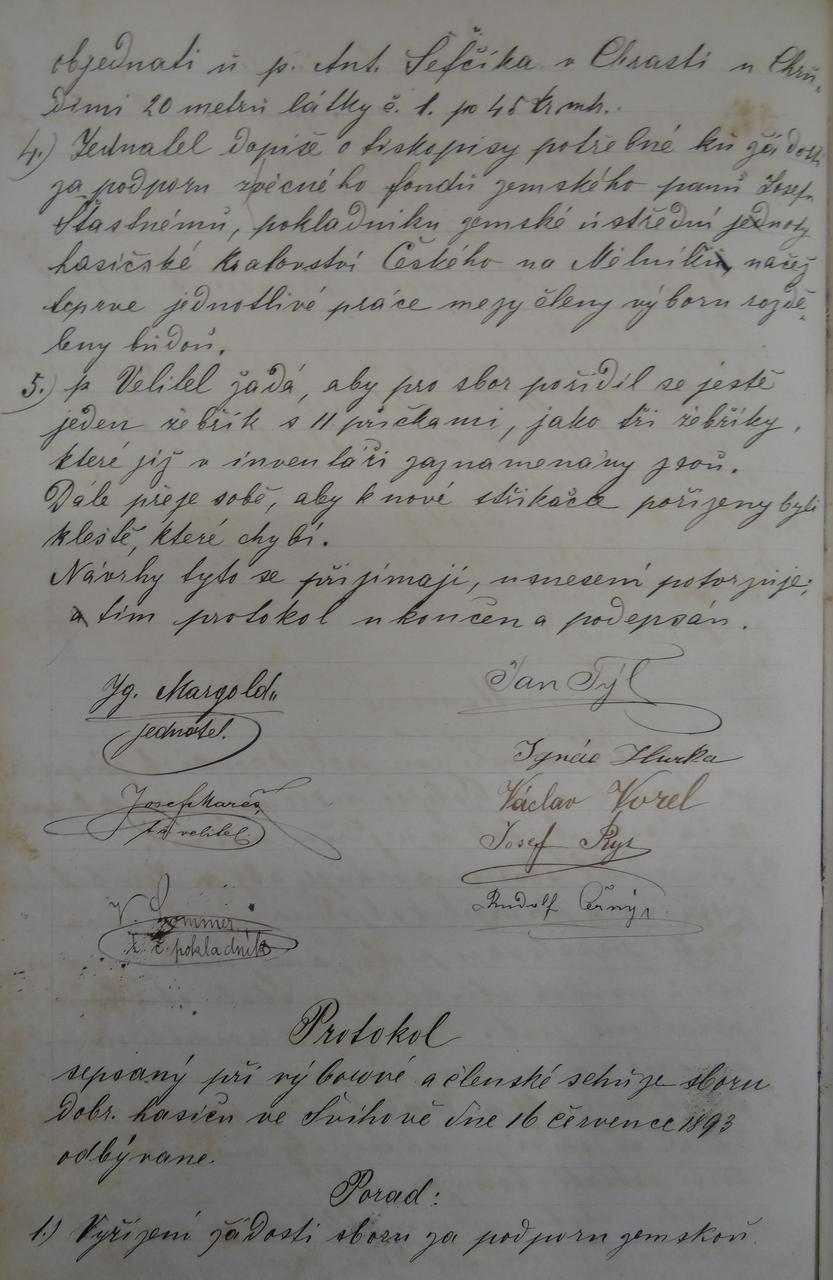 objednati u p. Ant. Šefčíka v Chrasti u Chru-
dimi 20 metrů látky č. 1. po 45 kr mtr.
4.) Jednatel dopíše o tiskopisy potřebné ku žádosti
za podporu z věcného fondu zemského panu Josefu
Šťastnému, pokladníku zemské ústřední jednoty
hasičské království Českého na Mělníku, načež
teprve jednotlivé práce mezy členy výboru rozdě-
leny budou.
5.) p Velitel žádá, aby pro sbor pořídil se ještě
jeden žebřík s 11 příčkami, jako tři žebříky,
které již v inventáři zaznamenány jsou.
Dále přeje sobě, aby k nové stříkačce pořízeny byli
kleště, které chybí.
Návrhy tyto se přijímají, usnesení potvrzuje;
a tím protokol ukončen a podepsán.
Ig. Margold
jednatel.
Jan Týl
Ignác Hurka
Josef Mareš
velitel.
Václav Vorel
Josef Rys
V. Sommer
t. č. pokladník
Rudolf Černý
Protokol
sepsaný při výborové a členské schůze sboru
dobr. hasičů ve Švihově dne 16 července 1893
odbývane.
Porad:
1.) Vyřízení žádosti sboru za podporu zemskou